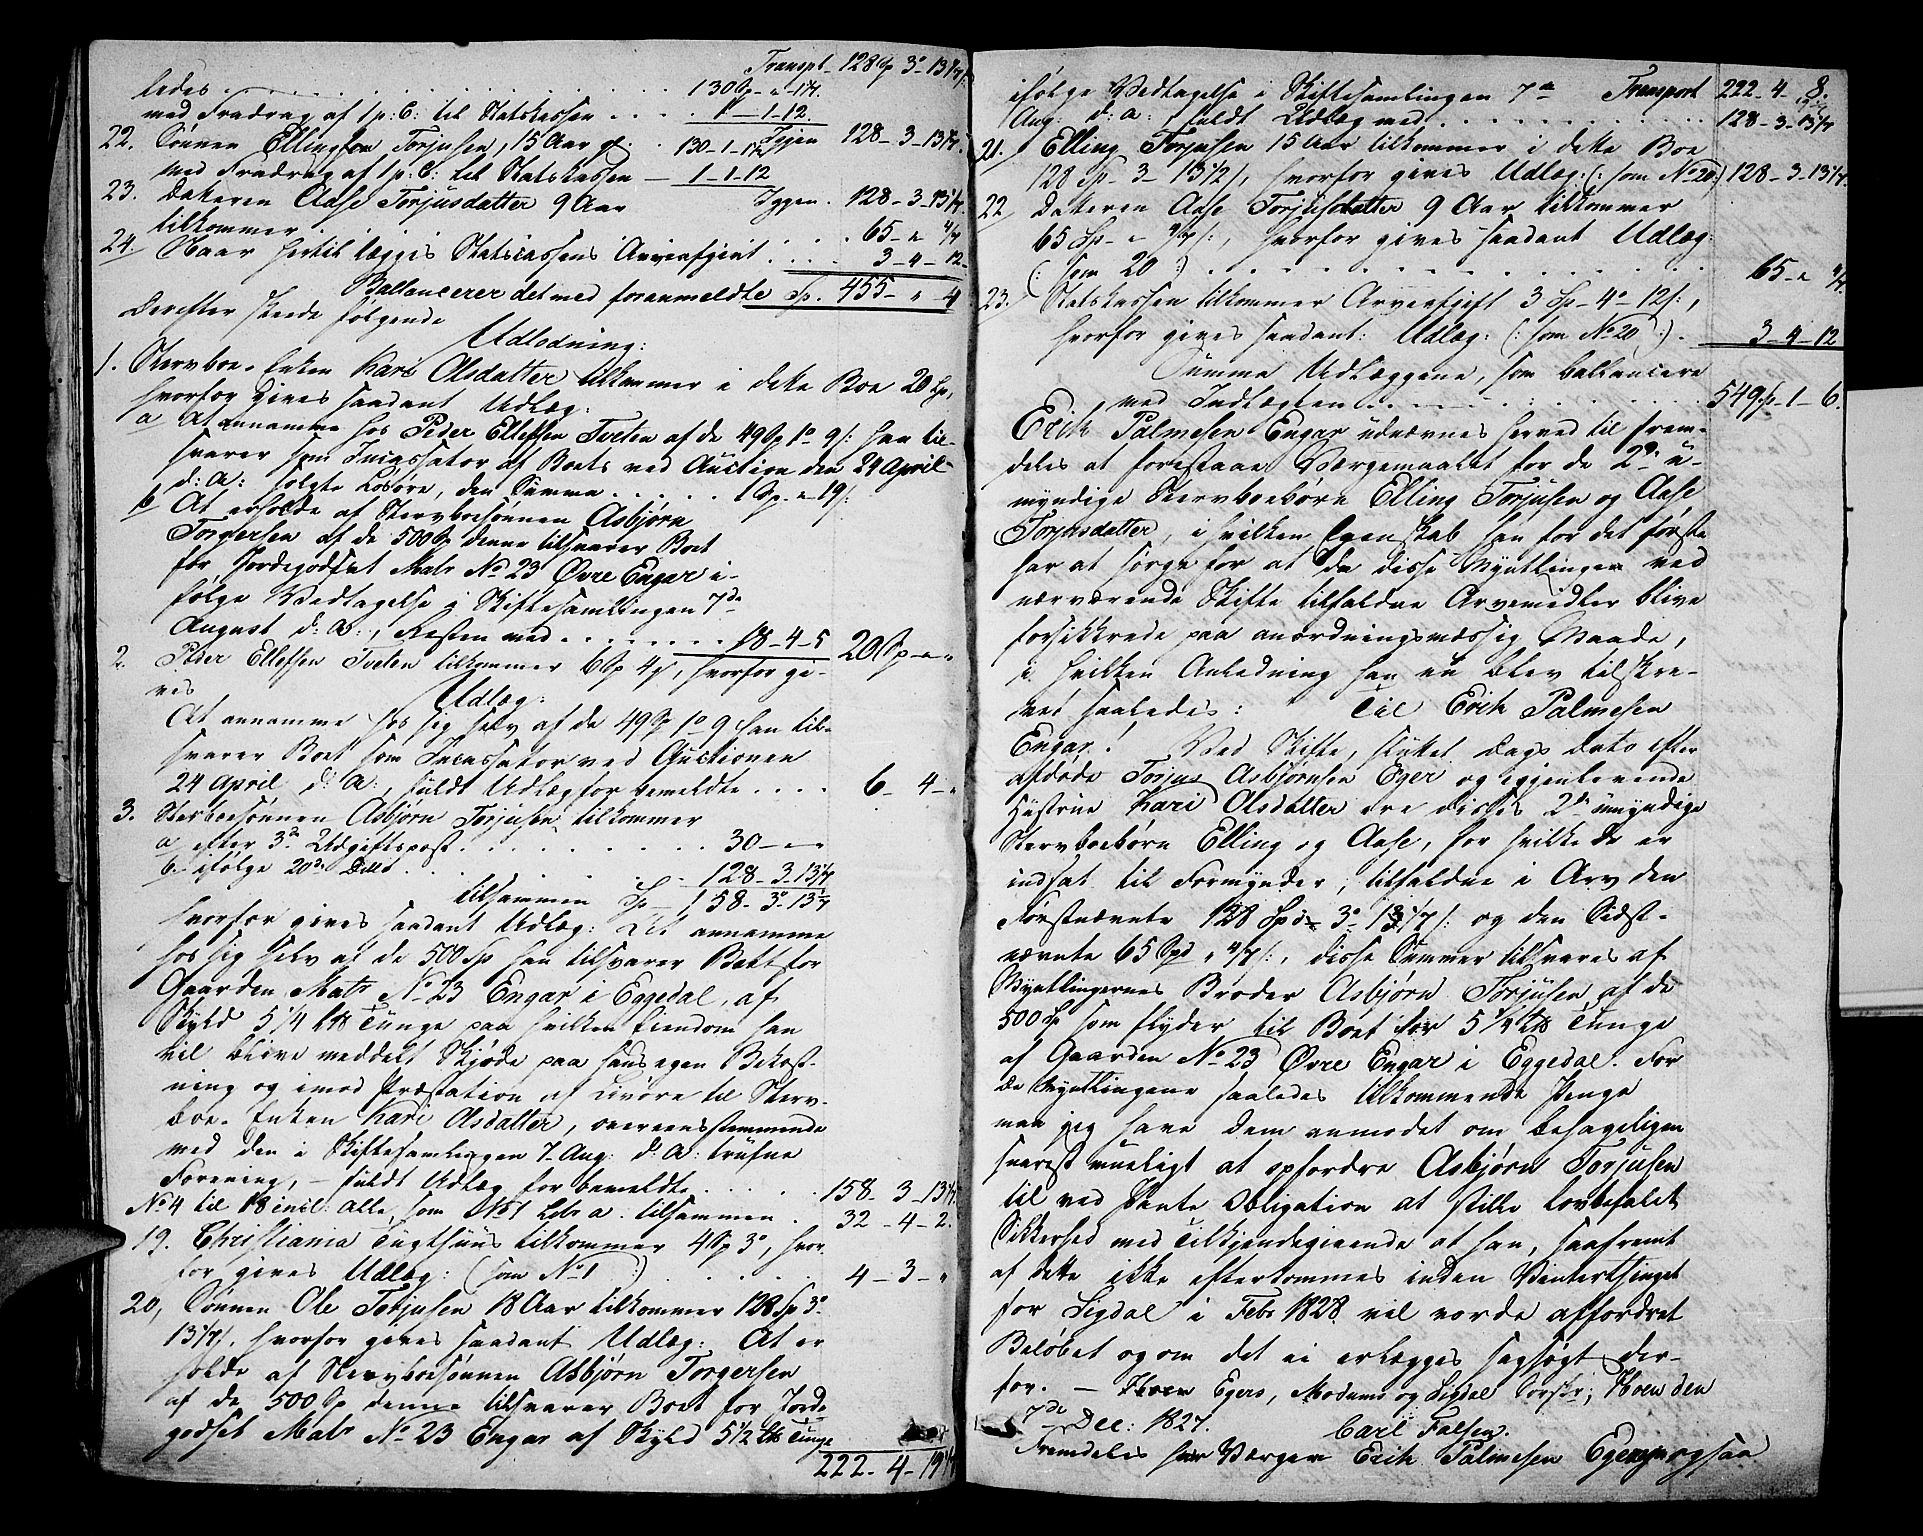 Transpt 128 Sp 3 13 1/7
ledes 130 Sp - " - 1 1/7.
med Fradrag af 1 p: C: til Statskassen 1 - 1 - 12.
22. Sønnen Elling Torjusen, 15 Aar gl. 130 - 1 - 1 1/7 Igjen 128 - 3 - 13 1/7.
med Fradrag af 1 p. C: til Statskassen 1 - 1 - 12
23. Datteren Aase Torjusdatter 9 Aar Igjen. 128 - 3 - 13 1/7.
tilkommer 65 - " 4/7
24. Naar hertil lægges Statscassens Arveafgivt 3 - 4 - 12.
Ballancerer det med foranmeldte Sp. 455 - " - 4
Derefter skeede følgende
Udlodning:
1. Stervboe-Enken Kari Olsdatter tilkommer i dette Boe 20 Sp,
hvorfor gives saadant Udlæg:
a At annamme hos Peder Ellefsen Tveten af de 49 Sp 1 9 /: han til-
svarer som Incassator af Boets ved Auction den 24 April
d: A: solgte Løsøre, den Summa 1 Sp. " 19 /:
b At erholde af Stervboesønnen Asbjørn
Torgersen af de 500 Sp denne tilsvarer Boet
for Jordegodset Matr No 23 Øvre Engar i-
følge Vedtagelse i Skiftesamlingen 7de
August d: A:, Resten med 18 - 4 - 5 20 Sp - " - "
2. Peder Ellefsen Tveten tilkommer 6 Sp 4, hvorfor gi-
ves
Udlæg:
At annamme hos sig selv af de 49 Sp 1 9 han til-
svarer Boet som Incassator ved Auctionen
24 April d: A:, fuldt Udlæg for bemeldte 6 - 4 - "
3. Sterboesønnen Asbjørn Torjusen tilkommer
a efter 3die Udgiftspost 30 - " - "
b ifølge 20de 128 - 3 - 13 1/7
tilsammen Sp 158 - 3 - 13 1/7
hvorfor gives saadant Udlæg: At annamme
hos sig selv af de 500 Sp han tilsvarer Boet for
Gaarden Matr No 23 Engar i Eggedal, af
Skyld 5 1/4 Lpd Tunge paa hvilken Eiendom han
vil blive meddelt Skjøde paa hans egen Bekost-
ning og imod Præstation af Livøre til Sterv-
boe-Enken Kari Olsdatter, overeensstemmende
med den i Skiftesamlingen 7 Aug: d: A: trufne
Forening, - fuldt Udlæg for bemeldte 158 - 3 - 13 1/7.
No 4 til 18 incl: alle, som No 1 Litr a. tilsammen 32 - 4 - 2.
19. Christiania Tugthuus tilkommer 4 Sp 3, hvor
for gives Udlæg: (som No 1 :) 4 - 3 - "
20, Sønnen Ole Torjusen 18 Aar tilkommer 128 Sp 3
13 1/7 /. hvorfor gives saadant Udlæg: At er
holde af Stervboesønnen Asbjørn Torgersen
af de 500 Sp denne tilsvarer Boet for Jorde
godset Matr No 23 Engar af Skyld 5 1/2 Lpd Tunge
222 - 4 - 19
ifølge Vedtagelse i Skiftesamlingen 7de Transport 222 - 4 - 8.
Aug: d: A: fuldt Udlæg med 128 - 3 - 13 1/7
21. Elling Torjusen 15 Aar tilkommer i dette Boe
128 Sp - 3 - 13 1/7 /, hvorfor gives Udlæg: (: som No 20) 128 - 3 - 13 1/7.
22 Datteren Aase Torjusdatter 9 Aar tilkommer
65 Sp - " 4/7 /:, hvorfor gives saadant Udlæg:
(: som 20 :) 65 - " 4/7.
23. Statskassen tilkommer Arveafgift 3 Sp - 4 - 12 /:,
hvorfor gives saadant: Udlæg: (: som No 20 :) 3 - 4 - 12
Summa Udlæggene, som ballancere
med Indtægten 549 Sp - 1 - 6.
Erik Palmesen Engar udnævnes herved til frem-
deles at forestaae Værgemaalet for de 2de u-
myndige Stervboebørn Elling Torjusen og Aase
Torjusdatter, i hvilken Egenskab han for det første
har at sørge for at de disse Myntlinger ved
nærværende Skifte tilfaldne Arvemidler blive
forsikkrede paa anordningsmæssig Maade,
i hvilken Anledning han nu blev tilskre-
vet saaledes: Til Erik Palmesen
Engar! Ved Skifte, sluttet Dags Dato efter
afdøde Torjus Asbjørnsen Eger og igjenlevende
Hustrue Kari Olsdatter ere disses 2de umyndige
Stervboebørn Elling og Aase, for hvilke De er
indsat til Formynder, tilfaldne i Arv den
Førstnævnte 128 Spd 3 13 1/7 /: og den Sidst-
nævnte 65 Spd " 4/7 /:, disse Summer tilsvares af
Myntlingernes Broder Asbjørn Torjusen, af de
500 Sp som flyder til Boet for 5 1/4 Lpd Tunge
af Gaarden No 23 Øvre Engar i Eggedal. For
de Myntlingene saaledes tilkommende Penge
maa jeg have Dem anmodet om behageligen
snarest mueligt at opfordre Asbjørn Torjusen
til ved Pante Obligation at stille lovbefalet
Sikkerhed med Tilkjendegivende at han, saafremt
af dette ikke efterkommes inden Vinterthinget
for Sigdal i Febr 1828 vil vorde affordret
Beløbet og om det ei erlægges sagsøgt der-
for. - Egers, Modums og Sigdal Sorskr; Hoen den
7de Dec: 1827. Carl Falsen.
Fremdeles har Værgen Erik Palmesen